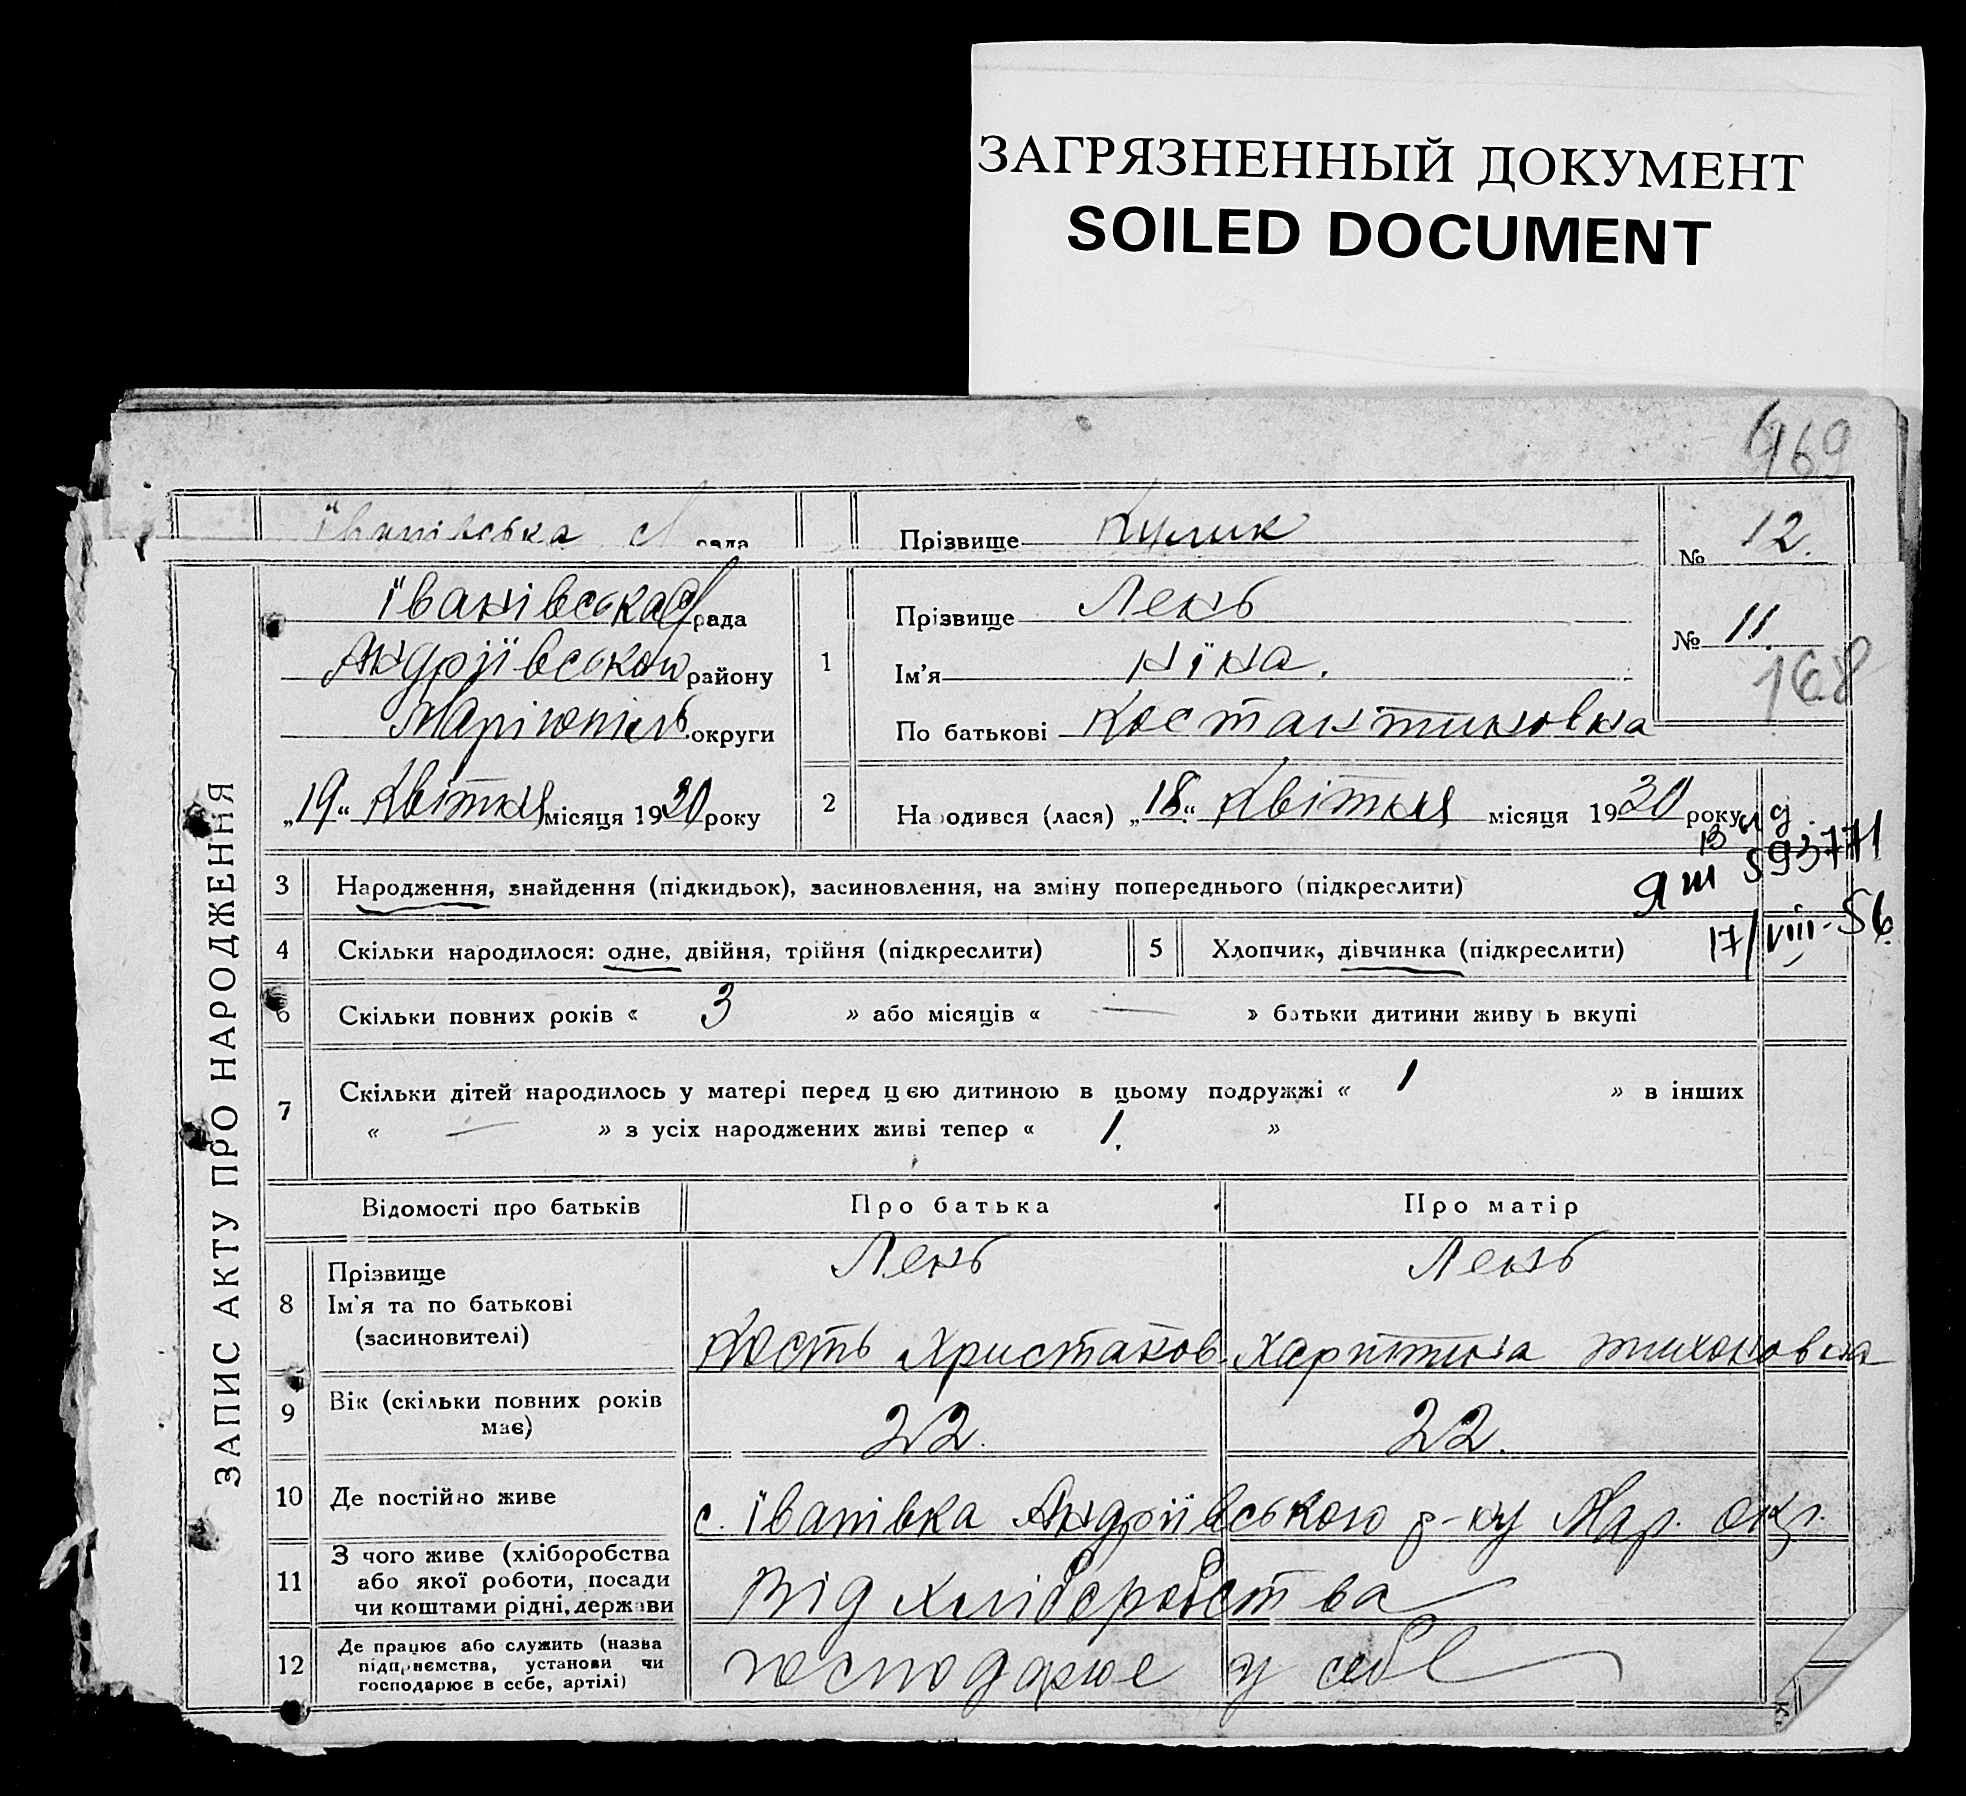 ЗАГРЯЗНЕННЫЙ ДОКУМЕНТ
SOILED DOCUMENT
969
Іванівська с/рада
Прізвище Кулик
№ 12.
ЗАПИС АКТУ ПРО НАРОДЖЕННЯ
Іванівська с/рада
Андріївськой району
Маріюпіль округи
„19“ Квітня місяця 1930 року
1
Прізвище Лень
Ім'я Ніна.
По батькові Костантиновна
№ 11.
168
2 Народився (лася) „18“ Квітня місяця 1930 року
3 Народження, знайдення (підкидьок), засиновлення, на зміну попереднього (підкреслити)
ЯШ 593771
17/VIII-56.
4 Скільки народилося: одне, двійня, трійня (підкреслити)
5 Хлопчик, дівчинка (підкреслити)
6 Скільки повних років « 3 » або місяців « — » батьки дитини живуть вкупі
7 Скільки дітей народилось у матері перед цією дитиною в цьому подружжі « 1 » в інших
« — » з усіх народжених живі тепер « 1. »
Відомості про батьків Про батька Про матір
8 Прізвище
Ім'я та по батькові
(засиновителі)
Лень
Кость Христаков.
Лень
Харитина Тихоновна
9 Вік (скільки повних років
має)
22. 22.
10 Де постійно живе с. Іванівка Андріївського р-ну Мар. окр.
11 З чого живе (хліборобства
або якої роботи, посади
чи коштами рідні, держави
Від хліборобства
12 Де працює або служить (назва
підприємства, установи чи
господарює в себе, артілі)
господарює у себе